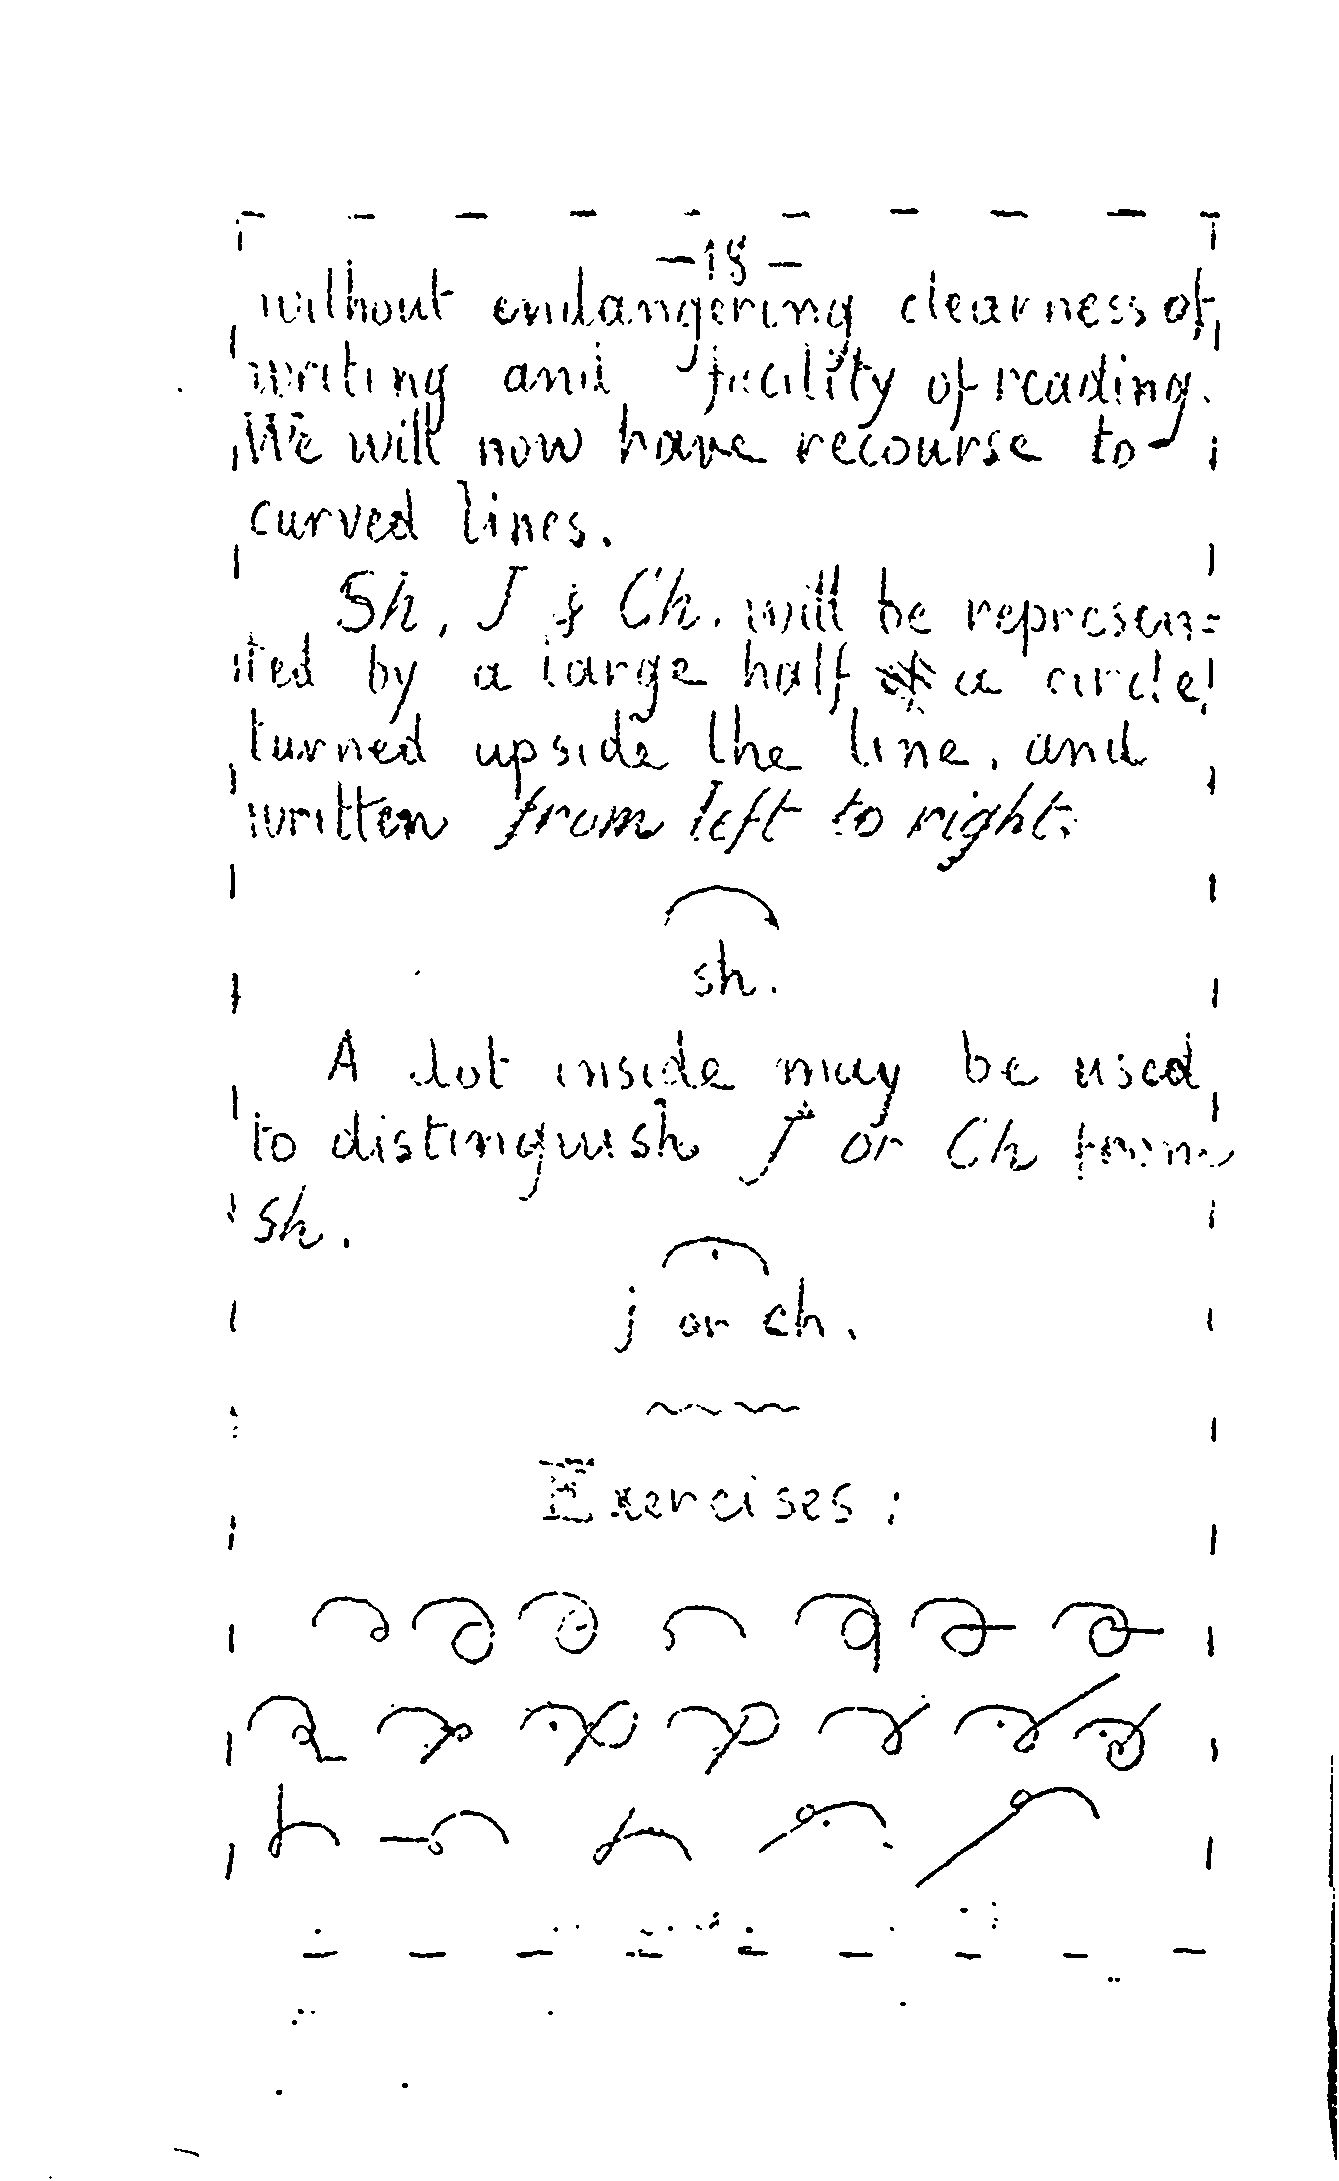 – 18 –
without endangering clearness of
writing and facility of reading.
We will now have recourse to
curved lines.
Sh, J & Ch. will be represen=
ted by a large half a circle
turned upside the line, and
written from left to right:
sh.
A dot inside may be used
to distinguish J or Ch from
Sh.
j or ch.
Exercises: